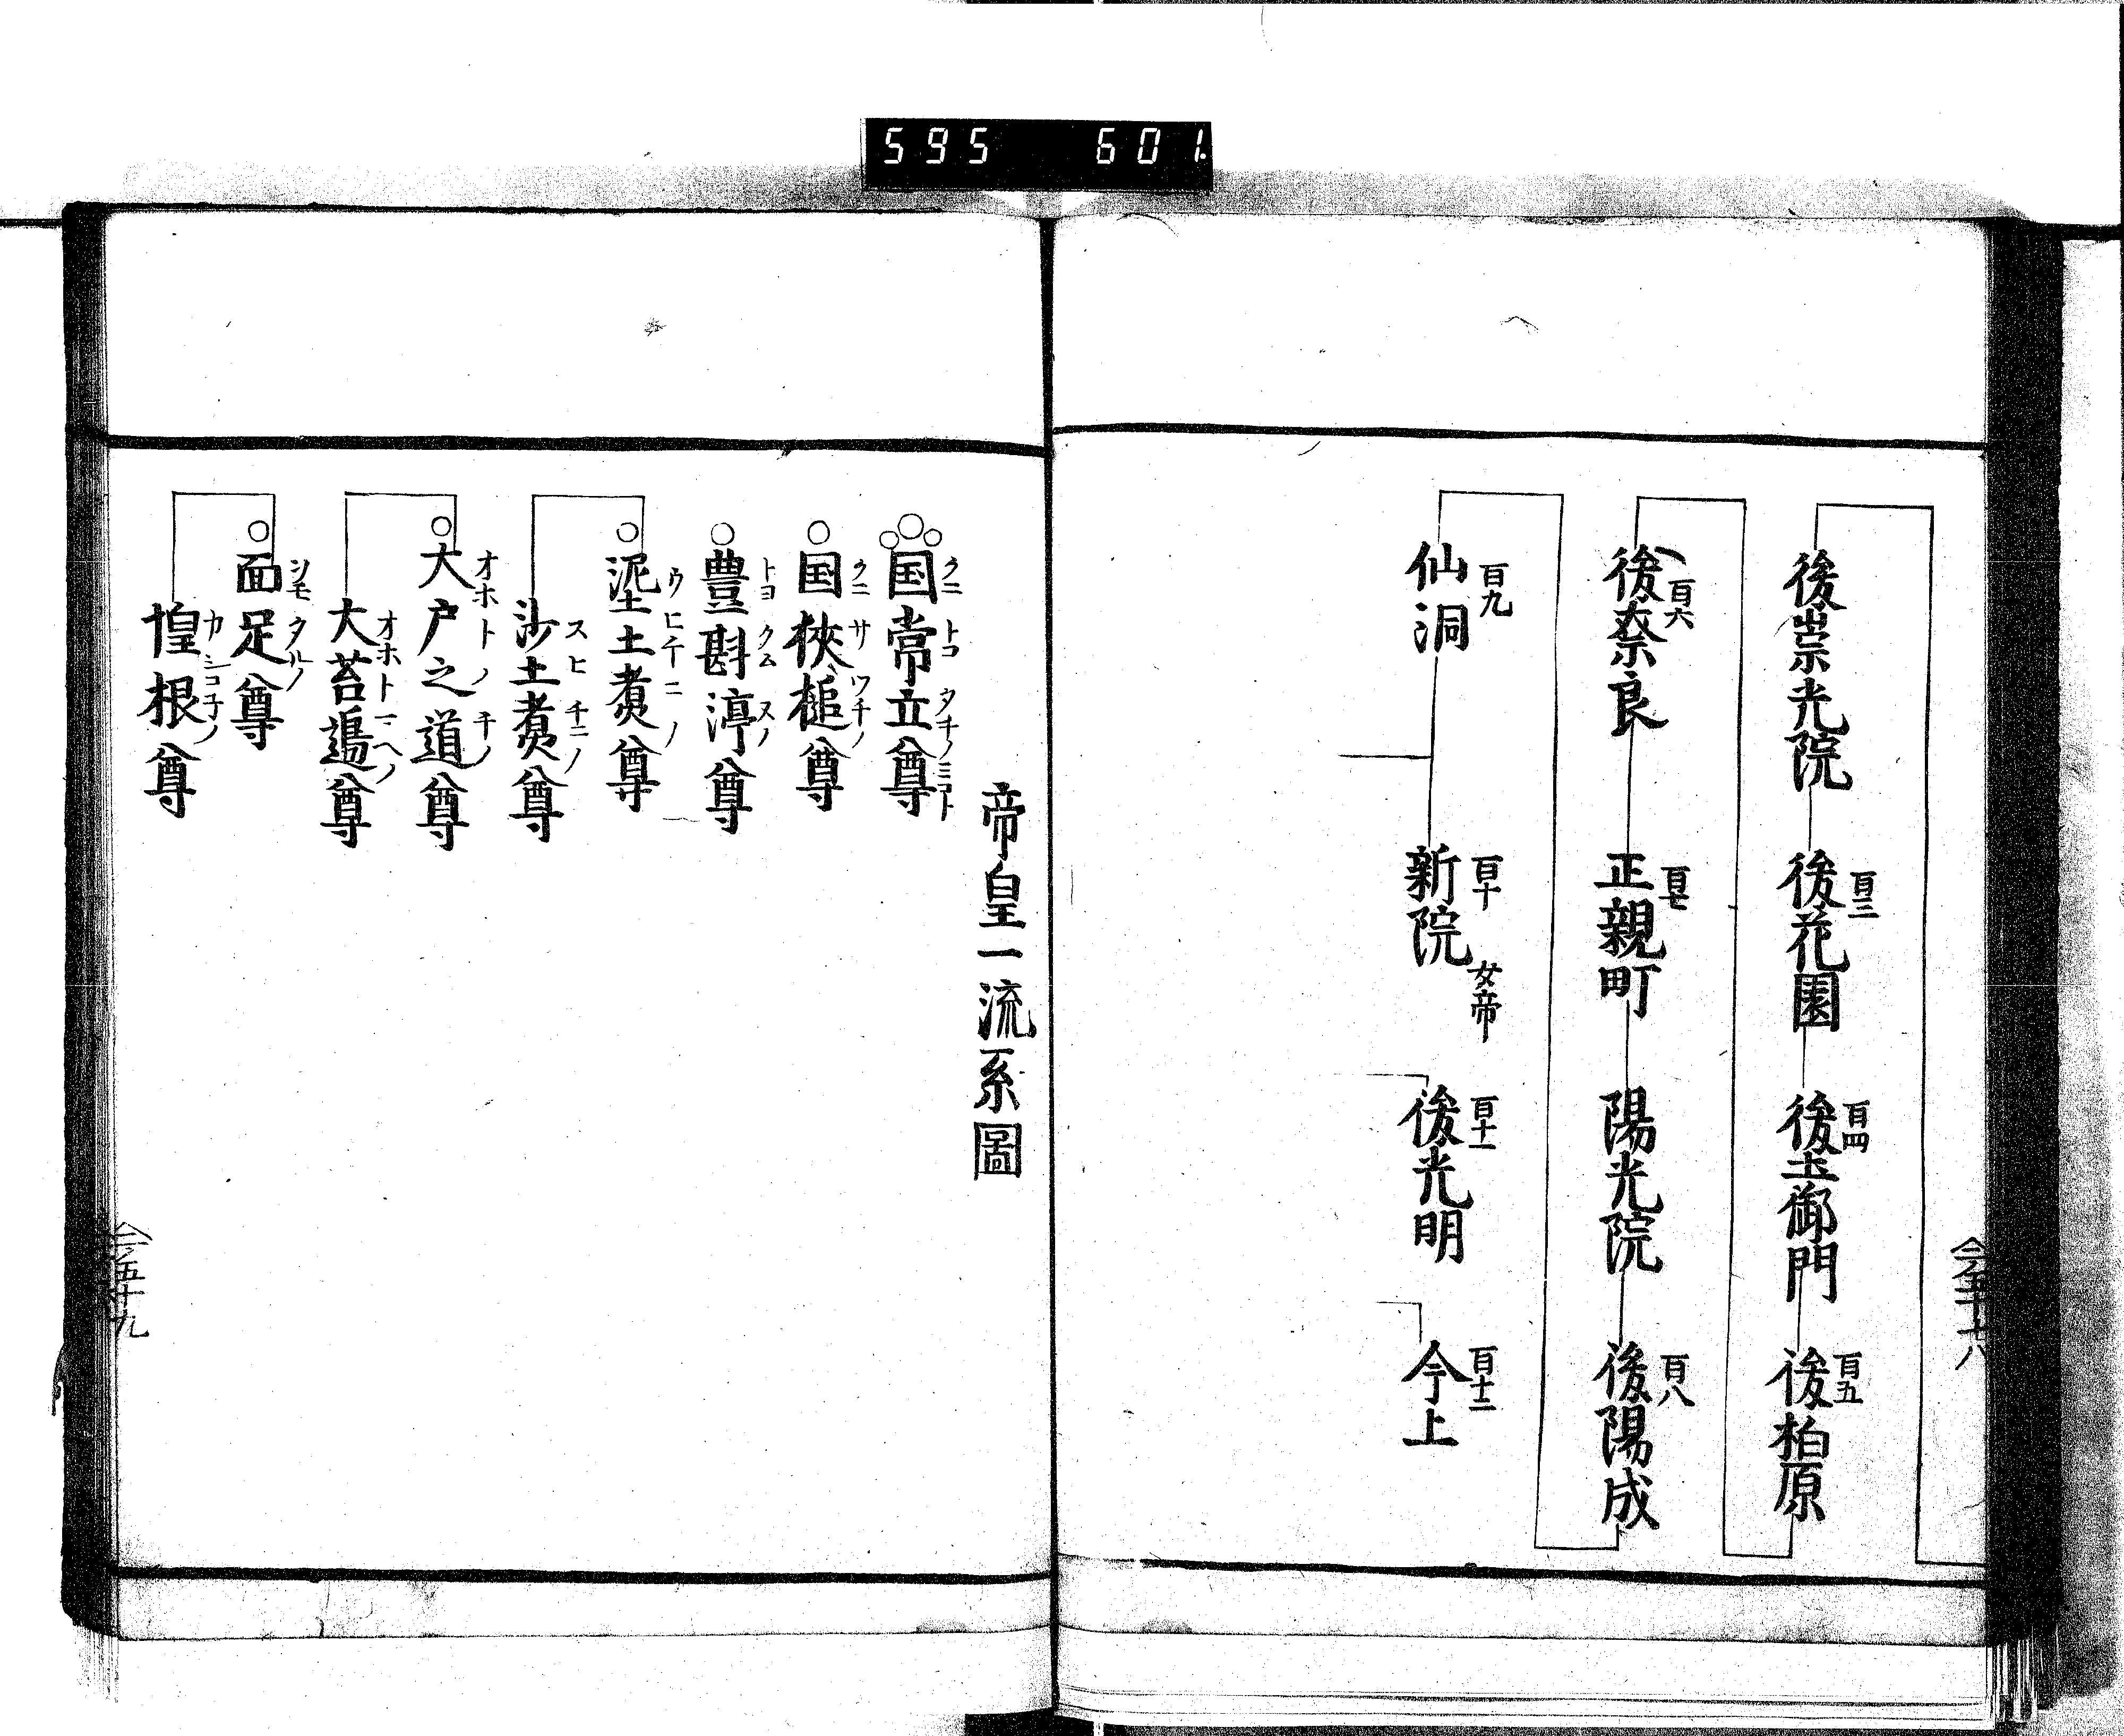 595 601.
後崇光院 後花園 百三 後土御門 百四 後柏原 百五
後奈良 百六 正親町 百七 陽光院 後陽成 百八
仙洞 百九 新院 百十 女帝 後光明 百十一 今上 百十二
帝皇一流系圖
国常立尊 クニ トコ タチノ ミコト
国狹槌尊 クニ サ ツチノ
豊斟渟尊 トヨ クム ヌノ
泥土煑尊 ウヒチニノ
沙土煑尊 スヒチニノ
大戸之道尊 オホトノチノ
大苫邉尊 オホトマヘノ
面足尊 タルノ
惶根尊 カシコネノ
五十九